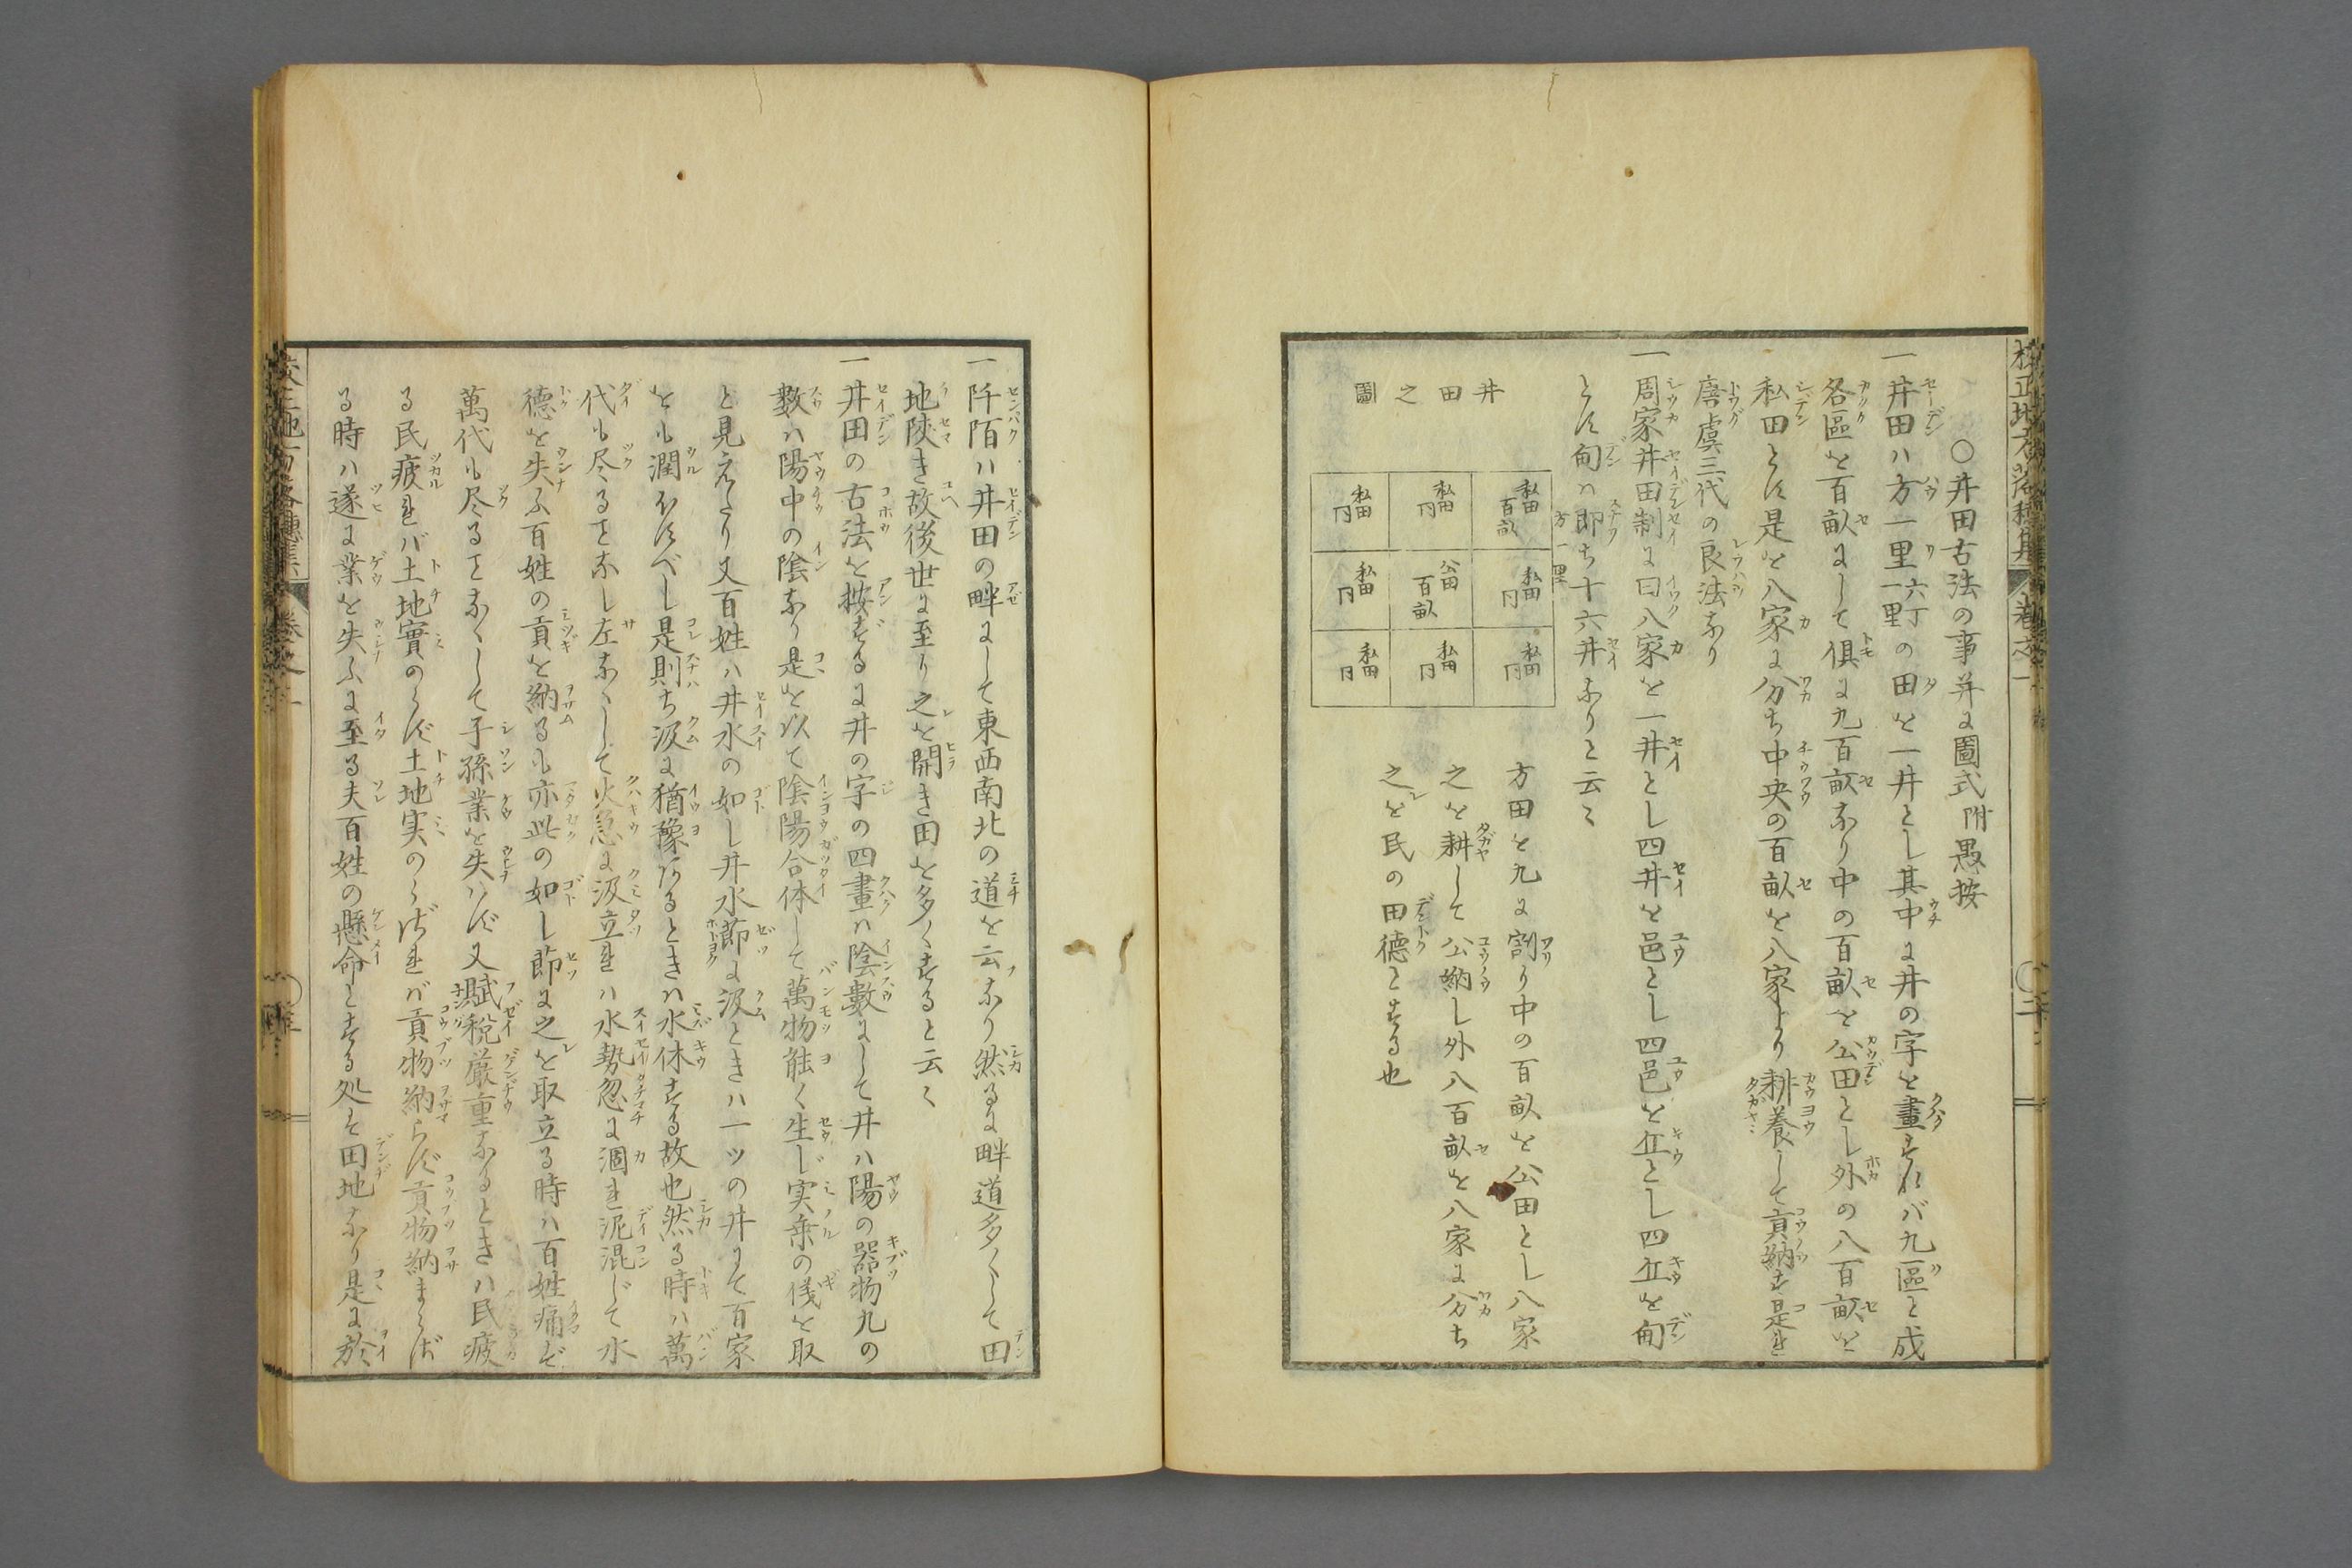 ○井田古法の事并に圖式附愚按
一井田ハ方一里六丁一里の田を一井とし其中に井の字を畫すれバ九區と成
各區を百畝にして俱に九百畝なり中の百畝を公田とし外の八百畝を
私田とす是を八家に分ち中央の百畝を八家より耕養して貢納す是れ
唐虞三代の良法なり
一周家井田制に曰八家を一井とし四井を邑とし四邑を丘とし四丘を甸
とす甸ハ即ち十六井なりと云々
井田之圖
方一里
私田百畝
私田同
私田同
私田同
公田百畝
私田同
私田同
私田同
私田同
方田を九に割り中の百畝を公田とし八家
之を耕して公納し外八百畝を八家に分ち
之を民の田德とする也
一阡陌ハ井田の畔にして東西南北の道を云なり然るに畔道多くして田
地陜き故後世に至り之を開き田を多くすると云々
一井田の古法を按ずるに井の字の四畫ハ陰數にして井ハ陽の器物九の
數ハ陽中の陰なり是を以て陰陽合体して萬物能く生じ実乗の儀を取
と見えたり又百姓ハ井水の如し井水節に汲ときハ一ツの井にて百家
をも潤ほすべし是則ち汲に猶豫あるときハ水休する故也然る時ハ萬
代も尽ることなし左なくして火急に汲立れハ水勢忽に涸れ泥混じて水
德を失ふ百姓の貢を納るも亦此の如し節に之を取立る時ハ百姓痛ず
萬代も尽ることなくして子孫業を失ハず又賦税厳重なるときハ民疲
る民疲れバ土地實のらず土地実のらざれバ貢物納らず貢物納まらざ
る時ハ遂に業を失ふに至る夫百姓の懸命とする処そ田地なり是に於